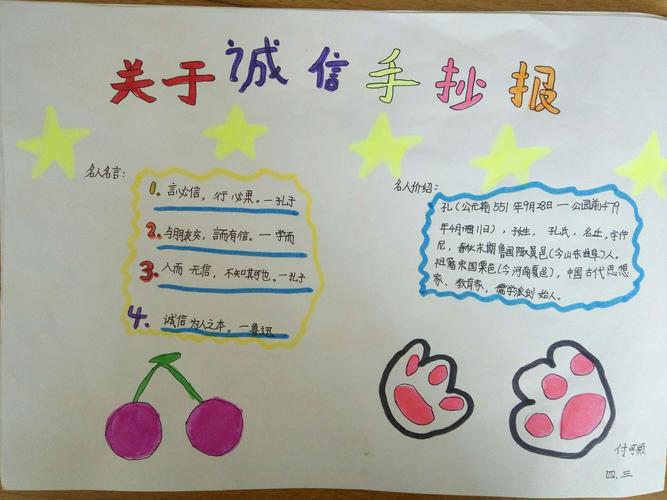 关于诚信手抄报
名人名言:
1. 言必信，行必果。一孔子
2. 与朋友交，言而有信。一学而
3. 人而无信，不知其可也。一孔子
4. 诚信为人之本。一鲁迅
名人介绍:
孔(公元前551年9月28日一公园前479
年4月11日)，子姓，孔氏，名丘，字仲
尼，春秋末期鲁国陬邑(今山东曲阜)人。
祖籍宋国栗邑(今河南夏邑)，中国古代思想
家、教育家，儒学派创始人。
四、三